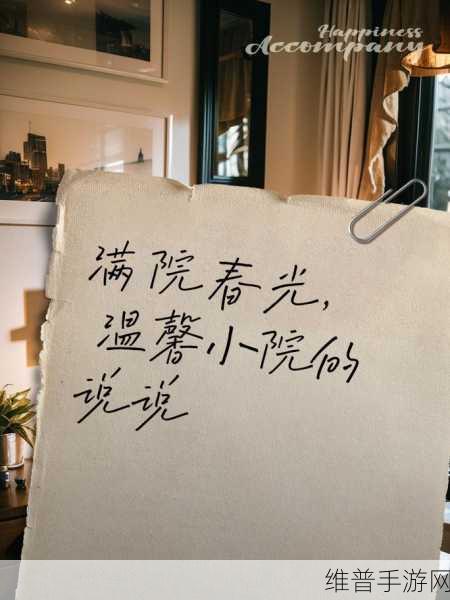 Happiness
Accompany
满院春光，
温馨小院的
说说
维普手游网